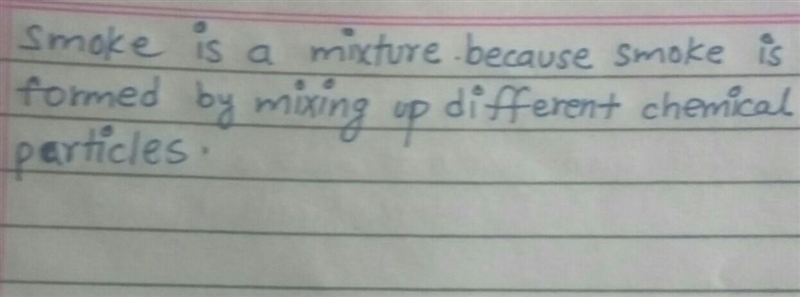 Smoke is a mixture. because smoke is
formed by mixing up different chemical
particles.